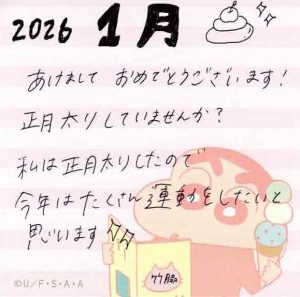 2026 1月
あけまして おめでとうございます!
正月太りしていませんか?
私は正月太りしたので
今年はたくさん運動をしたいと
思います
©U/F・S・A・A